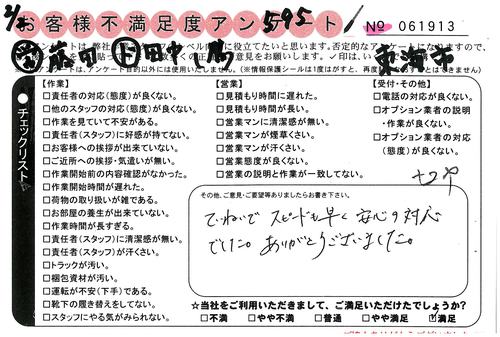 お客様不満足度アンケート
595
No 061913
東海市
チェックリスト
【作業】
□責任者の対応(態度)が良くない。
□他のスタッフの対応(態度)が良くない。
□作業を見ていて不安がある。
□責任者(スタッフ)に好感が持てない。
□お客様への挨拶が出来ていない。
□ご近所への挨拶・気遣いが無い。
□作業開始前の内容確認がなかった。
□作業開始時間が遅れた。
□荷物の取り扱いが雑である。
□お部屋の養生が出来ていない。
□作業時間が長すぎる。
□責任者(スタッフ)に清潔感が無い。
□責任者(スタッフ)が汗くさい。
□トラックが汚い。
□梱包資材が汚い。
□運転が不安(下手)である。
□靴下の履き替えをしてない。
□スタッフにやる気がみられない。
【営業】
□見積もり時間に遅れた。
□見積もり時間が長い。
□営業マンに清潔感が無い。
□営業マンが煙草くさい。
□営業マンが汗くさい。
□営業態度が良くない。
□営業の説明と作業が一致してない。
【受付・その他】
□電話の対応が良くない。
□オプション業者の説明
・作業が良くない。
□オプション業者の対応
(態度)が良くない。
その他、ご意見・ご要望等ありましたらお書き下さい。
ていねいで スピードも早く 安心の対応
でした。ありがとうございました。
☆当社をご利用いただきまして、ご満足いただけたでしょうか?
□不満 □やや不満 □普通 □やや満足 □満足